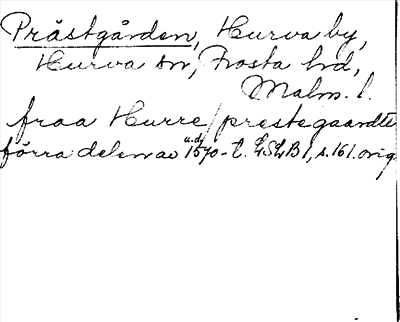 Prästgården, Hurva by,
Hurva sn, Frosta hd,
Malm. l.
fraa Hurre / prestegaardte
förra delen av 1570-t. LSLB 1, s. 161. orig